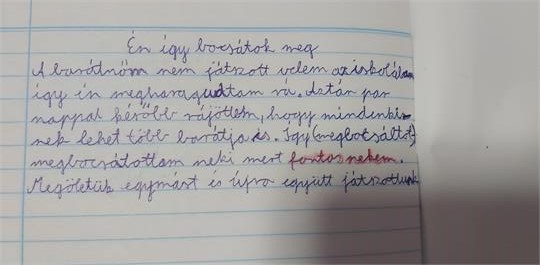 Én így bocsátok meg
A barátnőm nem játszott velem az iskolában
így én megharagudtam rá. Aztán par
nappal később rájöttem, hogy mindenki-
nek lehet több barátja is. Így (megbocsáltot)
megbocsátottam neki mert fontos nekem.
Megöletük egymást és újra együtt játszottunk